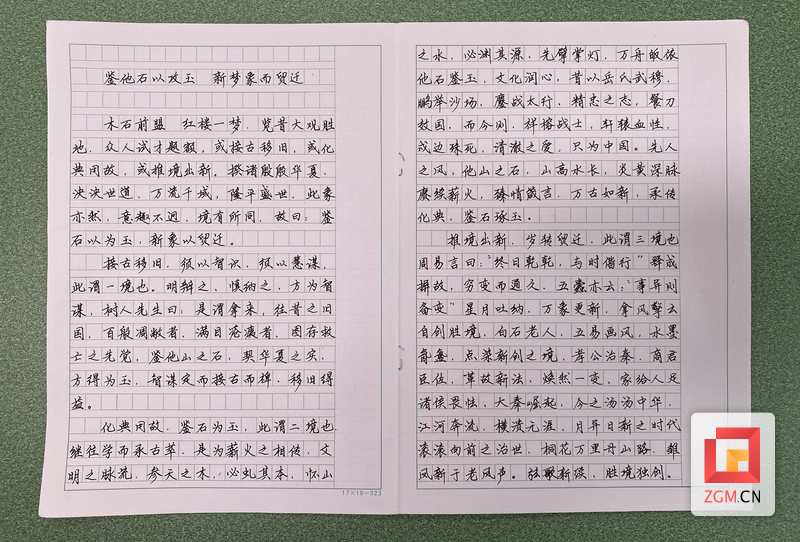 鉴他石以攻玉 新梦象而贸迁
木石前盟，红楼一梦，览昔大观胜
地，众人试才题额，或接古移旧，或化
典用故，或推境出新。揆诸殷殷华夏，
泱泱世道，万流千域，隆平盛世，此象
亦然，意趣不迥，境有所同，故曰：鉴
石以为玉，新象以贸迁。
接古移旧，役以智识，役以慧谋，
此谓一境也。明辩之，慎纳之，方为智
谋，树人先生曰：是谓拿来，往昔之旧
国，百般凋敝者，满目疮痍者，图存救
亡之先觉，鉴他山之石，契华夏之实，
方得为玉，智谋定而接古而稗，移旧得
益。
化典用故，鉴石为玉，此谓二境也，
继往学而承古萃，是为薪火之相传，文
明之脉流，参天之木，必虬其本，怀山
之水，必渊其源，先擘掌灯，万舟皈依
他石鉴玉，文化润心，昔以岳氏武穆，
鹏举沙场，鏖战太行，精忠之志，餐刀
效国，而今则，祥榕战士，轩辕血性，
戍边殊死，清澈之爱，只为中国。先人
之风，他山之石，山高水长，炎黄深脉
赓续薪火，臻情箴言，万古如新，承传
化典，鉴石琢玉。
推境出新，步转贸迁，此谓三境也
周易言曰：“终日乾乾，与时偕行”群成
摒故，穷变而通久，五蠹亦云：“事异则
备变”星月吐纳，万象更新，拿风擎云
自创胜境，白石老人，五易画风，水墨
青盎，点染新创之境，孝公治秦，商君
巨佐，革故新法，焕然一变，家给人足
诸侯畏怯，大秦崛起，今之汤汤中华，
江河奔流，横溃无涯，月异日新之时代
滚滚向前之治世，桐花万里丹山路，雏
风新于老风声。弦歌新缑，胜境独创。
17×18=323
ZGM.CN